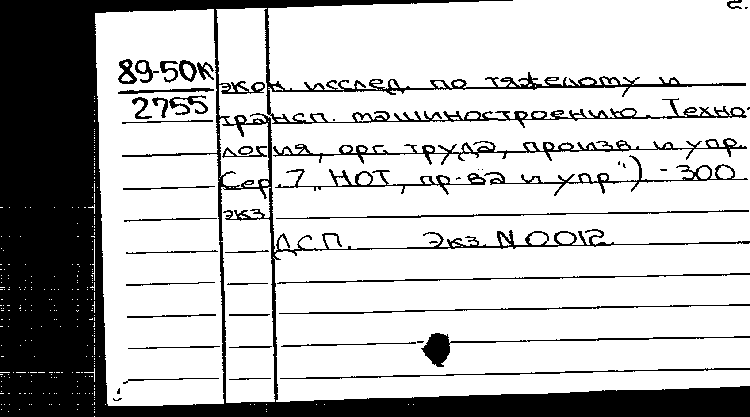 89-50к
2755
экон. исслед. по тяжелому и
трансп. машиностроению. Техно-
логия, орг. труда, произв. и упр.
Сер. 7 „НОТ, пр-ва и упр.") - 300
экз.
ДСП. Экз. N 0012